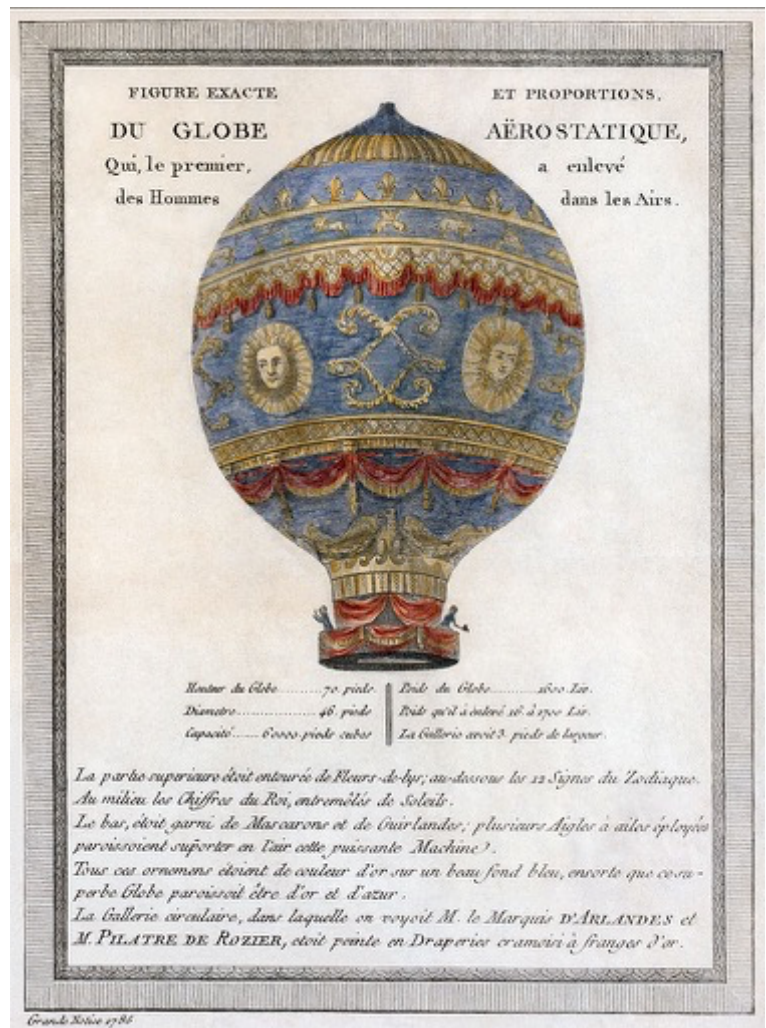 FIGURE EXACTE ET PROPORTIONS,
DU GLOBE AËROSTATIQUE,
Qui, le premier, a enlevé
des Hommes dans les Airs.
Hauteur du Globe..........70. pieds
Diametre....................46. pieds
Capacité......60000. pieds cubes
Poids du Globe...........1600. Liv.
Poids qu'il à enlevé 16. à 1700 Liv.
La Gallerie avoit 3. pieds de largeur.
La partie superieure étoit entourée de Fleurs-de-lys; au-dessous les 12 Signes du Zodiaque.
Au milieu les Chiffres du Roi, entremêlés de Soleils.
Le bas, étoit garni de Mascarons et de Guirlandes; plusieurs Aigles à ailes éployées
paroissoient suporter en l'air cette puissante Machine.
Tous ces ornemens étoient de couleur d'or sur un beau fond bleu, ensorte que ce su-
perbe Globe paroissoit être d'or et d'azur.
La Gallerie circulaire, dans laquelle on voyoit M. le Marquis D'ARLANDES et
M. PILATRE DE ROZIER, etoit peinte en Draperies cramoisi à franges d'or.
1786